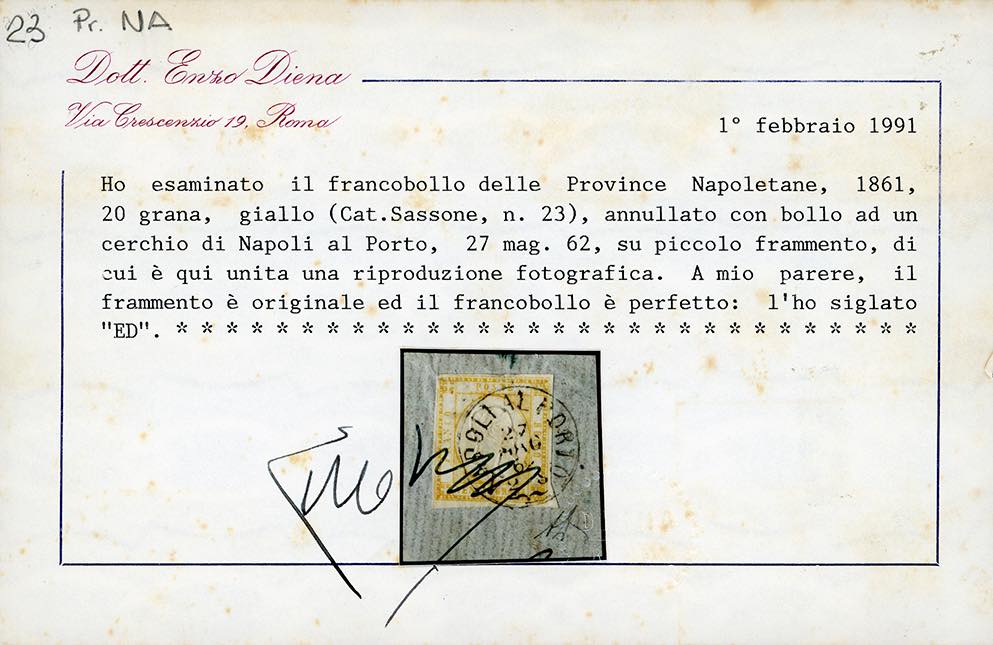 23 Pr. NA
Dott. Enzo Diena
Via Crescenzio 19, Roma
1° febbraio 1991
Ho esaminato il francobollo delle Province Napoletane, 1861,
20 grana, giallo (Cat.Sassone, n. 23), annullato con bollo ad un
cerchio di Napoli al Porto, 27 mag. 62, su piccolo frammento, di
cui è qui unita una riproduzione fotografica. A mio parere, il
frammento è originale ed il francobollo è perfetto: l'ho siglato
"ED". * * * * * * * * * * * * * * * * * * * * * * * * * * * * * *
27
MAG